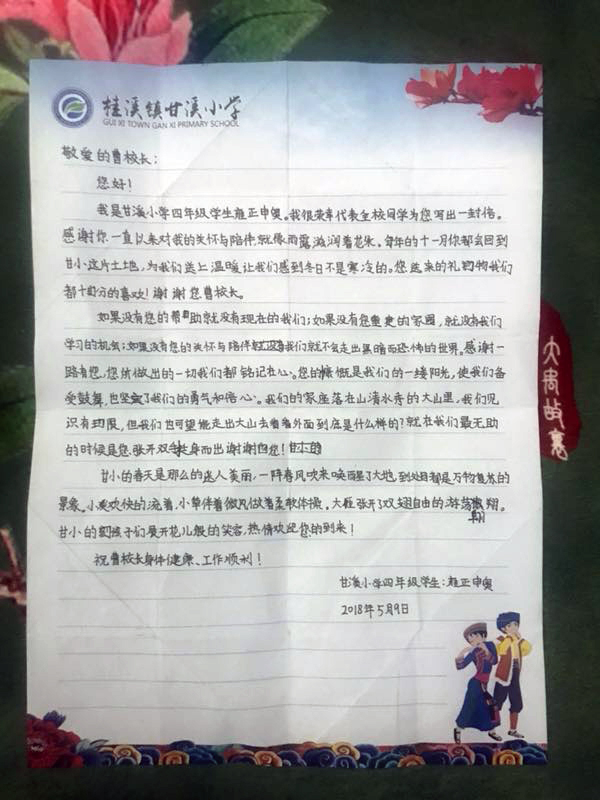 桂溪镇甘溪小学
GUI XI TOWN GAN XI PRIMARY SCHOOL
敬爱的曹校长：
您好！
我是甘溪小学四年级学生雍正申奥。我很荣幸代表全校同学为您写出一封信。
感谢你一直以来对我的关怀与陪伴就像雨露滋润着花朵。每年的十一月你都会回到
甘小这片土地，为我们送上温暖让我们感到冬日不是寒冷的。您送来的礼物我们
都十分的喜欢！谢谢您曹校长。
如果没有您的帮助就没有现在的我们；如果没有您重建的家园，就没有我们
学习的机会；如果没有您的关怀与陪伴我们就不会走出黑暗而恐怖的世界。感谢一
路有您，您所做出的一切我们都铭记在心。您的慷慨是我们的一缕阳光，使我们备
受鼓舞，也坚定了我们的勇气和信心。我们的家座落在山清水秀的大山里，我们见
识有限，但我们也可望能走出大山去看看外面到底是什么样的？就在我们最无助
的时候是您张开双手挺身而出谢谢您！
甘小的春天是那么的迷人美丽，一阵春风吹来唤醒了大地，到处都是万物复苏的
景象。小溪欢快的流着，小草伴着微风做着柔软体操，大雁张开了双翅自由的游荡翱翔。
甘小的孩子们展开花儿般的笑容，热情欢迎您的到来！
祝曹校长身体健康、工作顺利！
甘溪小学四年级学生：雍正申奥
2018年5月9日
大禹故里